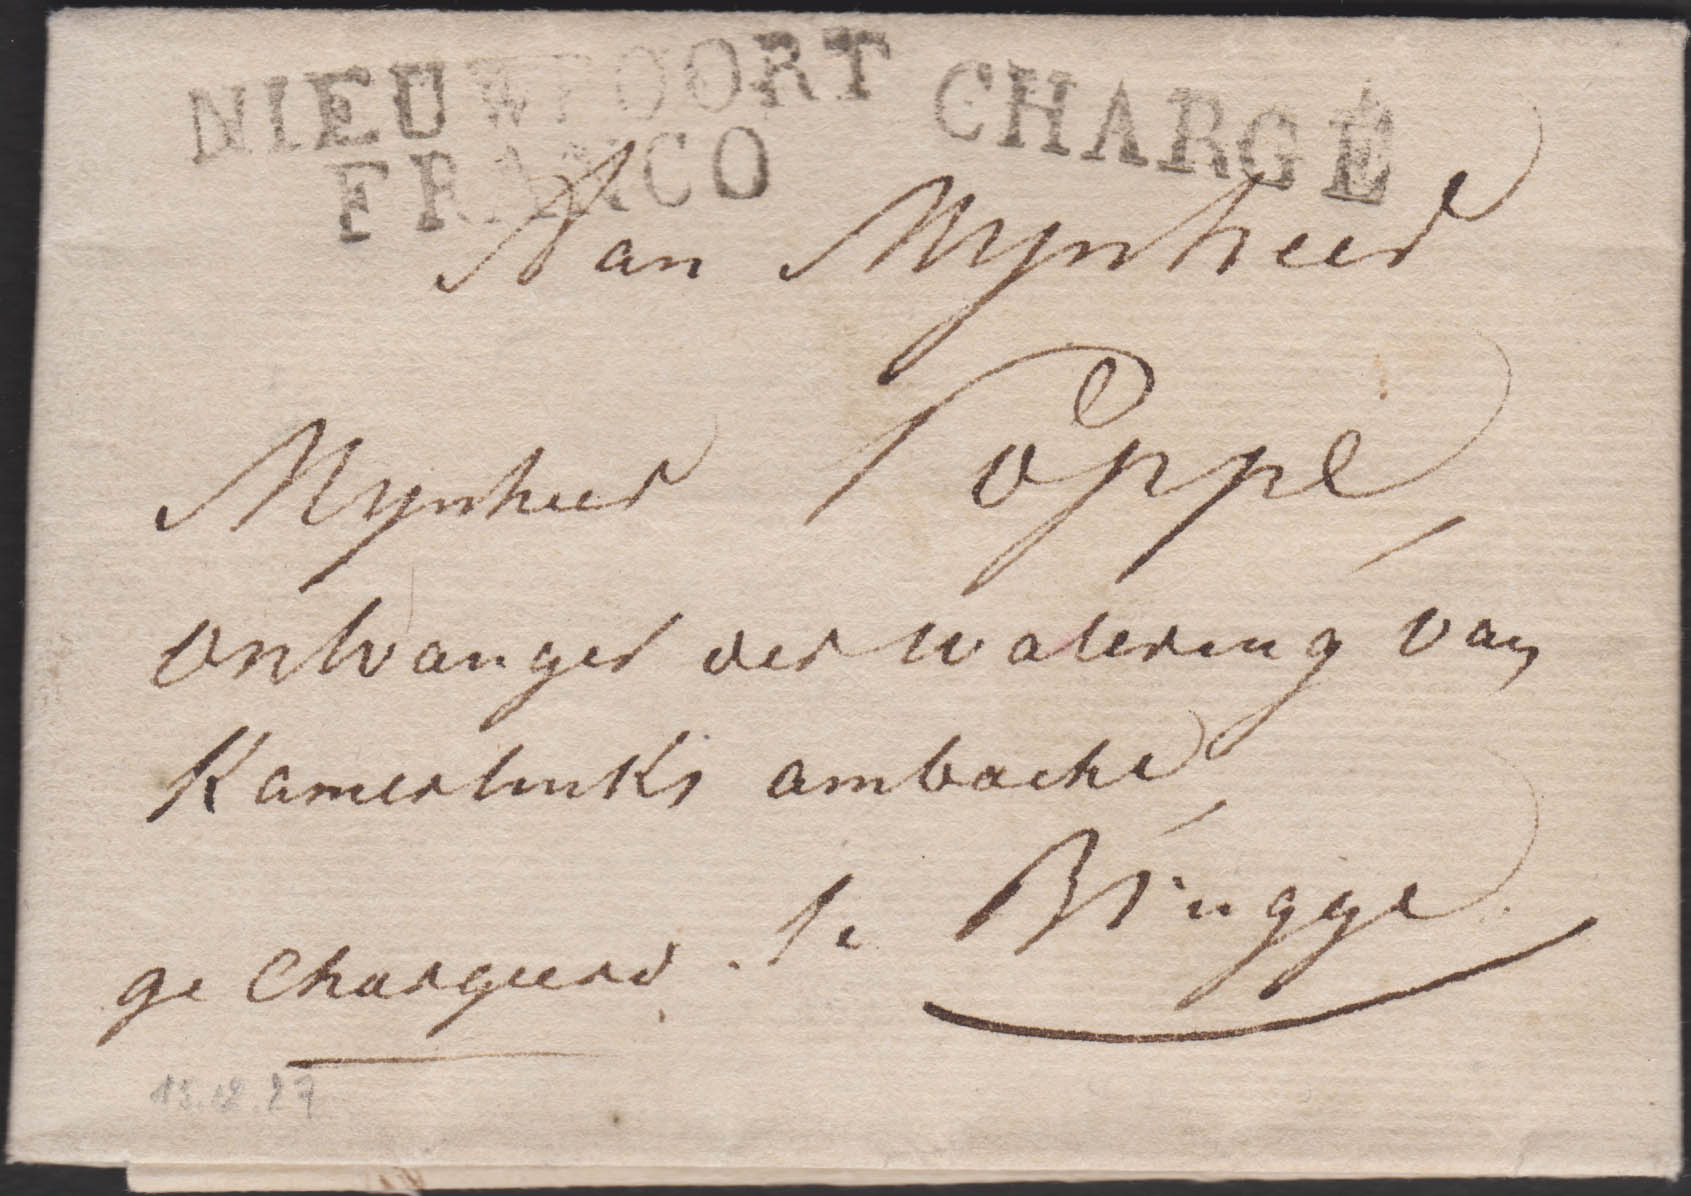 NIEUWPOORT
FRANCO
CHARGÉ
Aan Mynheer
Mynheer Poppe
ontvanger der watering van
Kamerlinks ambacht
ge Chargeerd. te Brugge
13.12.27